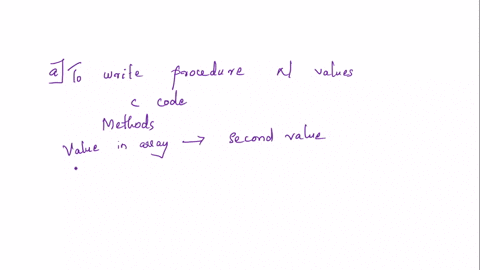 a] To write procedure x/ values
c code
Methods
Value in array → second value